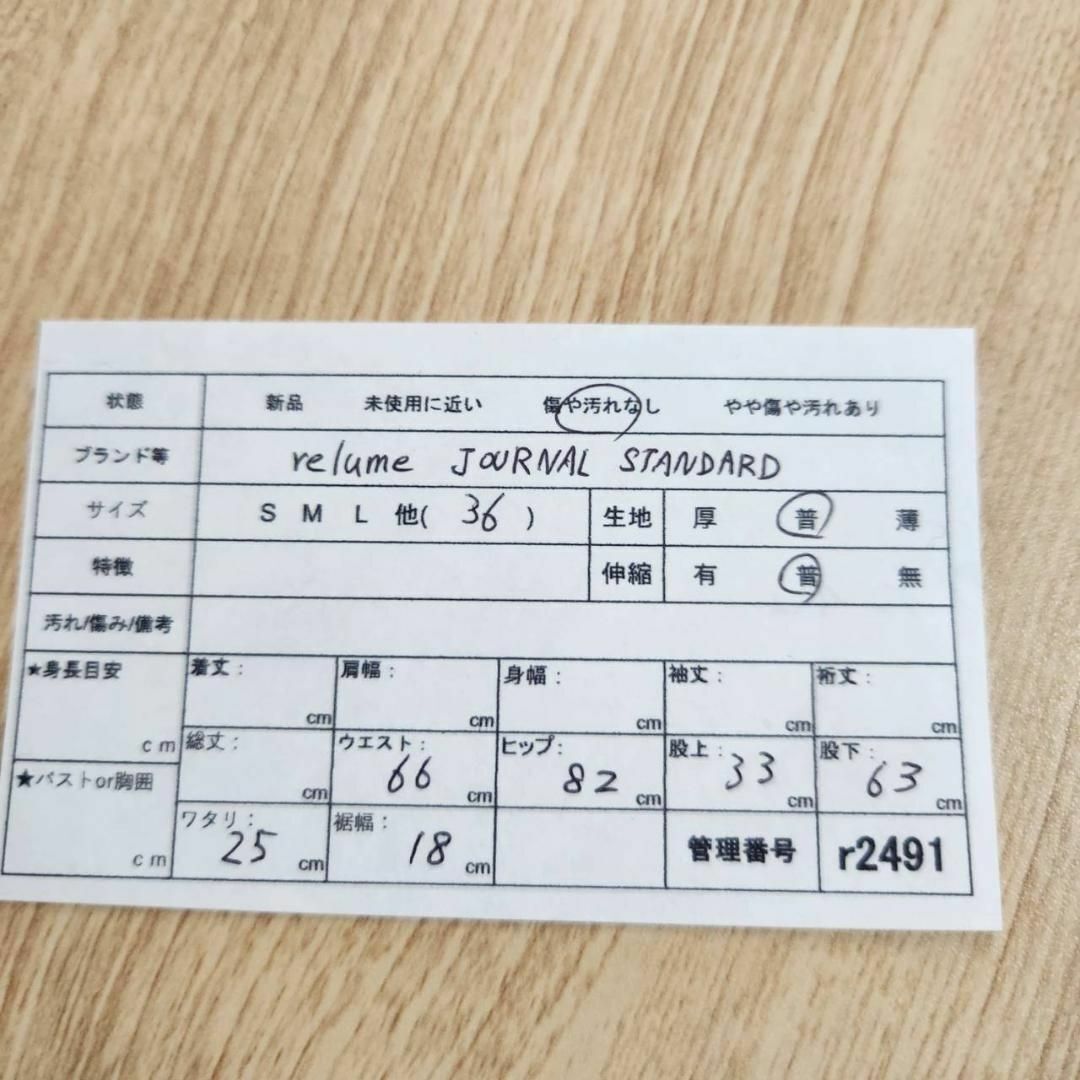 状態 新品 未使用に近い 傷や汚れなし やや傷や汚れあり
ブランド等 relume JOURNAL STANDARD
サイズ S M L 他( 36 ) 生地 厚 普 薄
特徴 伸縮 有 普 無
汚れ/傷み/備考
★身長目安 cm 着丈: cm 肩幅: cm 身幅: cm 袖丈: cm 裄丈: cm
総丈: cm ウエスト: 66 cm ヒップ: 82 cm 股上: 33 cm 股下: 63 cm
★バストor胸囲 cm ワタリ: 25 cm 裾幅: 18 cm 管理番号 r2491